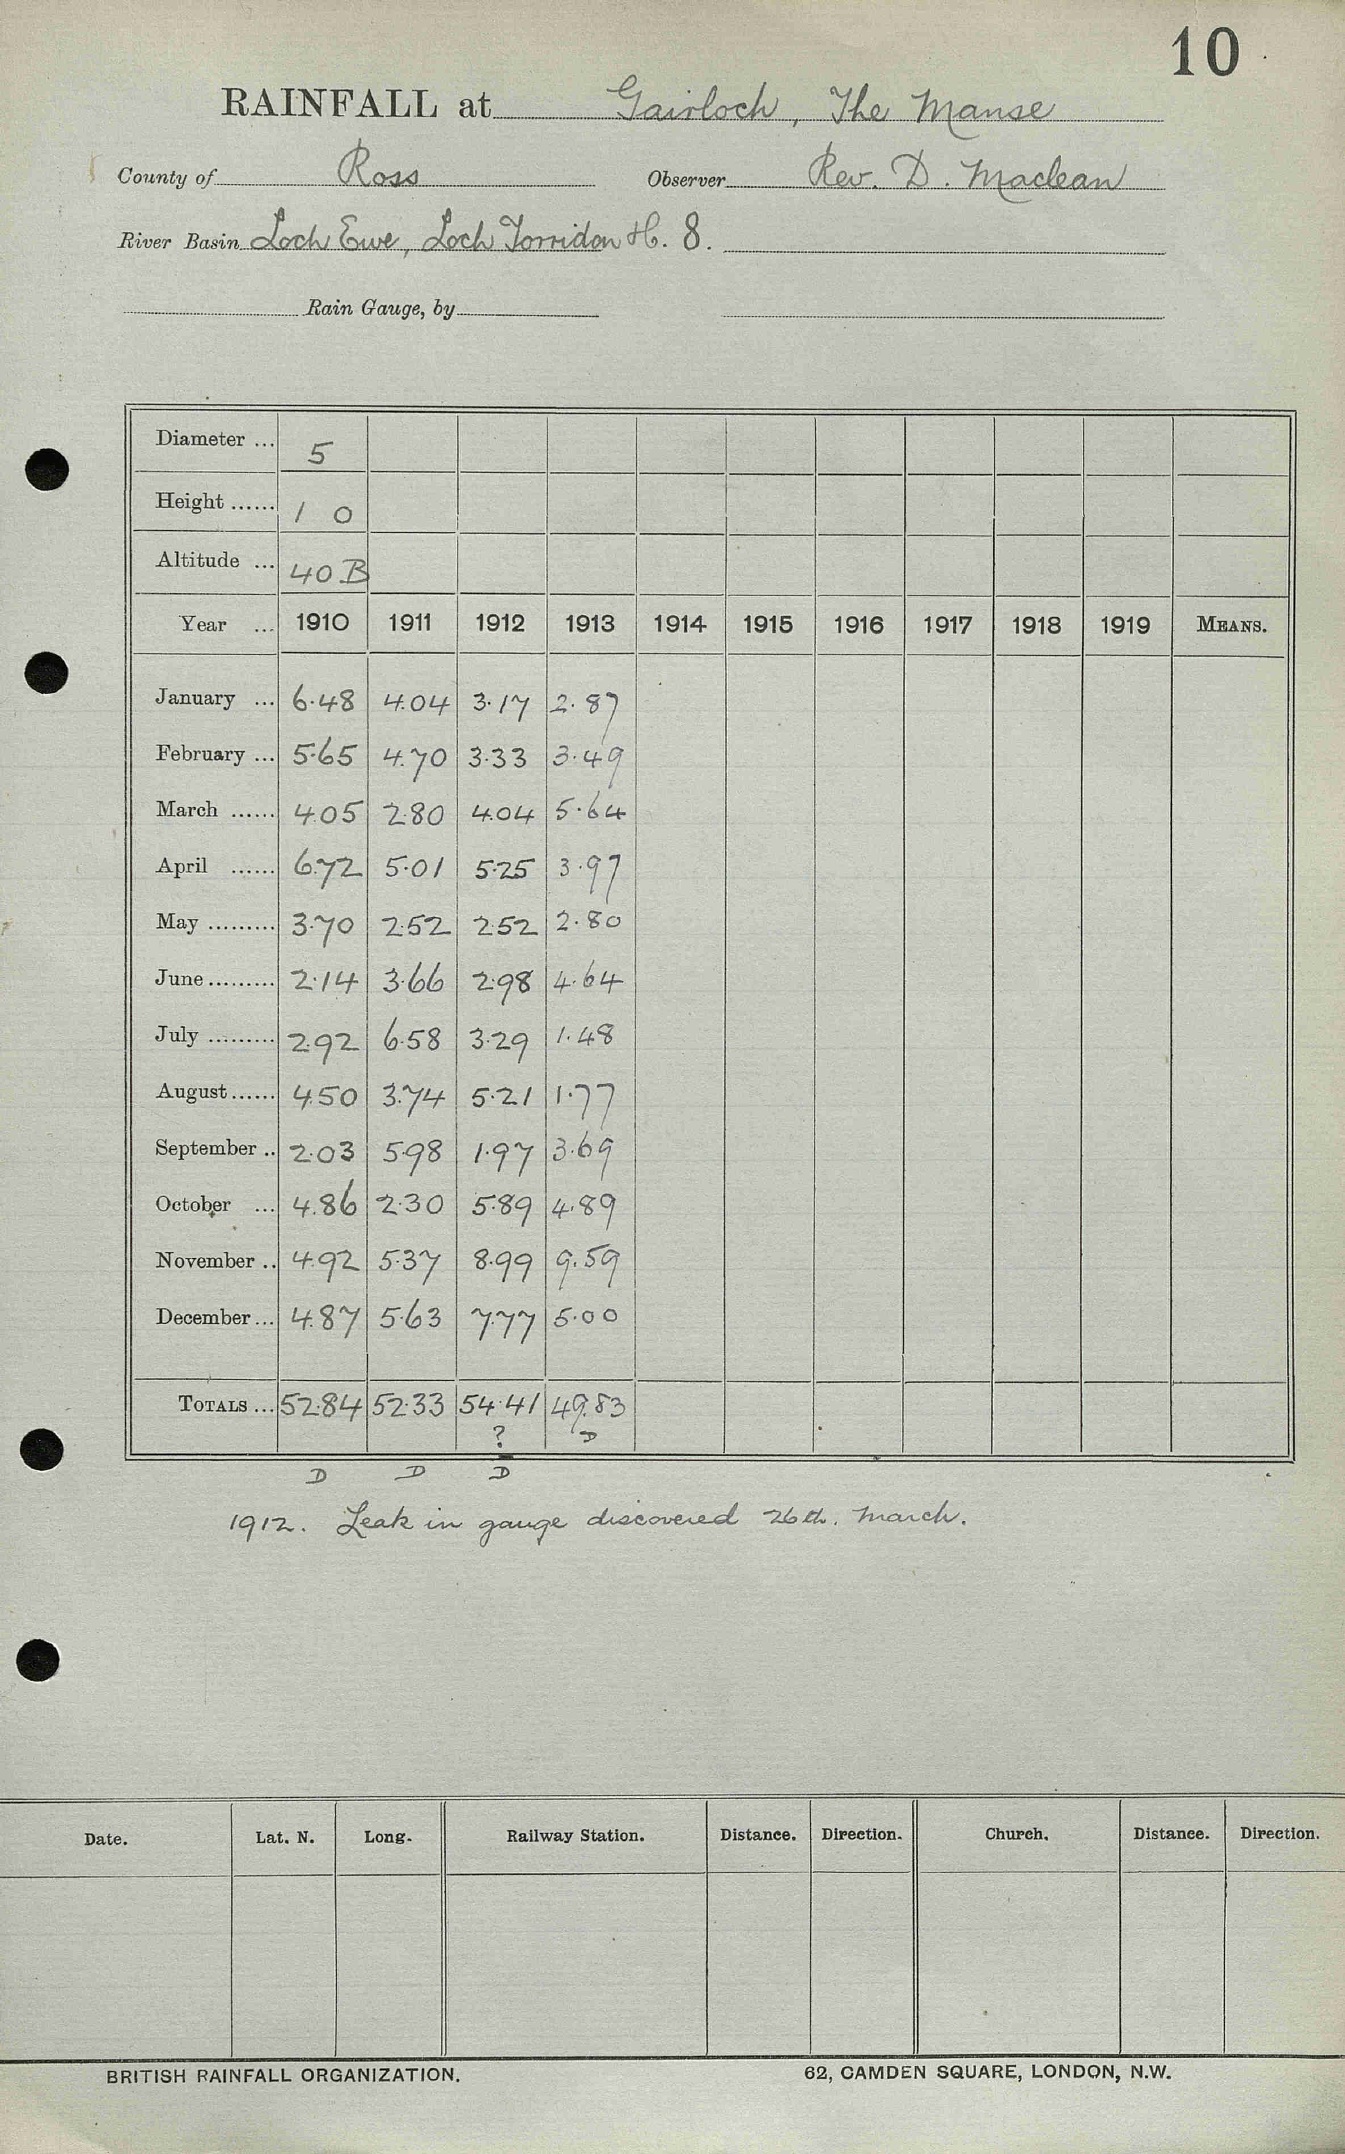 10
RAINFALL at Gairloch, The Manse
County of Ross Observer Rev. D. Maclean
River Basin Loch Ewe, Loch Torridon H. 8.
Rain Gauge, by
Diameter ... 5
Height ...... 1 0
Altitude ... 40 B
Year ... 1910 1911 1912 1913 1914 1915 1916 1917 1918 1919 MEANS.
January ... 6.48 4.04 3.17 2.87
February ... 5.65 4.70 3.33 3.49
March ...... 4.05 2.80 4.04 5.64
April ...... 6.72 5.01 5.25 3.97
May ......... 3.70 2.52 2.52 2.80
June ......... 2.14 3.66 2.98 4.64
July ......... 2.92 6.58 3.29 1.48
August ...... 4.50 3.74 5.21 1.77
September .. 2.03 5.98 1.97 3.69
October ... 4.86 2.30 5.89 4.89
November .. 4.92 5.37 8.99 9.59
December ... 4.87 5.63 7.77 5.00
TOTALS ... 52.84 52.33 54.41 49.83
? D
D D D
1912. Leak in gauge discovered 26th. March.
Date. Lat. N. Long. Railway Station. Distance. Direction. Church. Distance. Direction.
BRITISH RAINFALL ORGANIZATION. 62, CAMDEN SQUARE, LONDON, N.W.